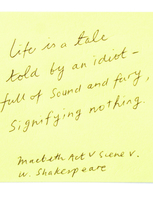 Life is a tale
told by an idiot -
full of sound and fury,
Signifying nothing.
Macbeth Act V Scene V.
W. Shakespeare